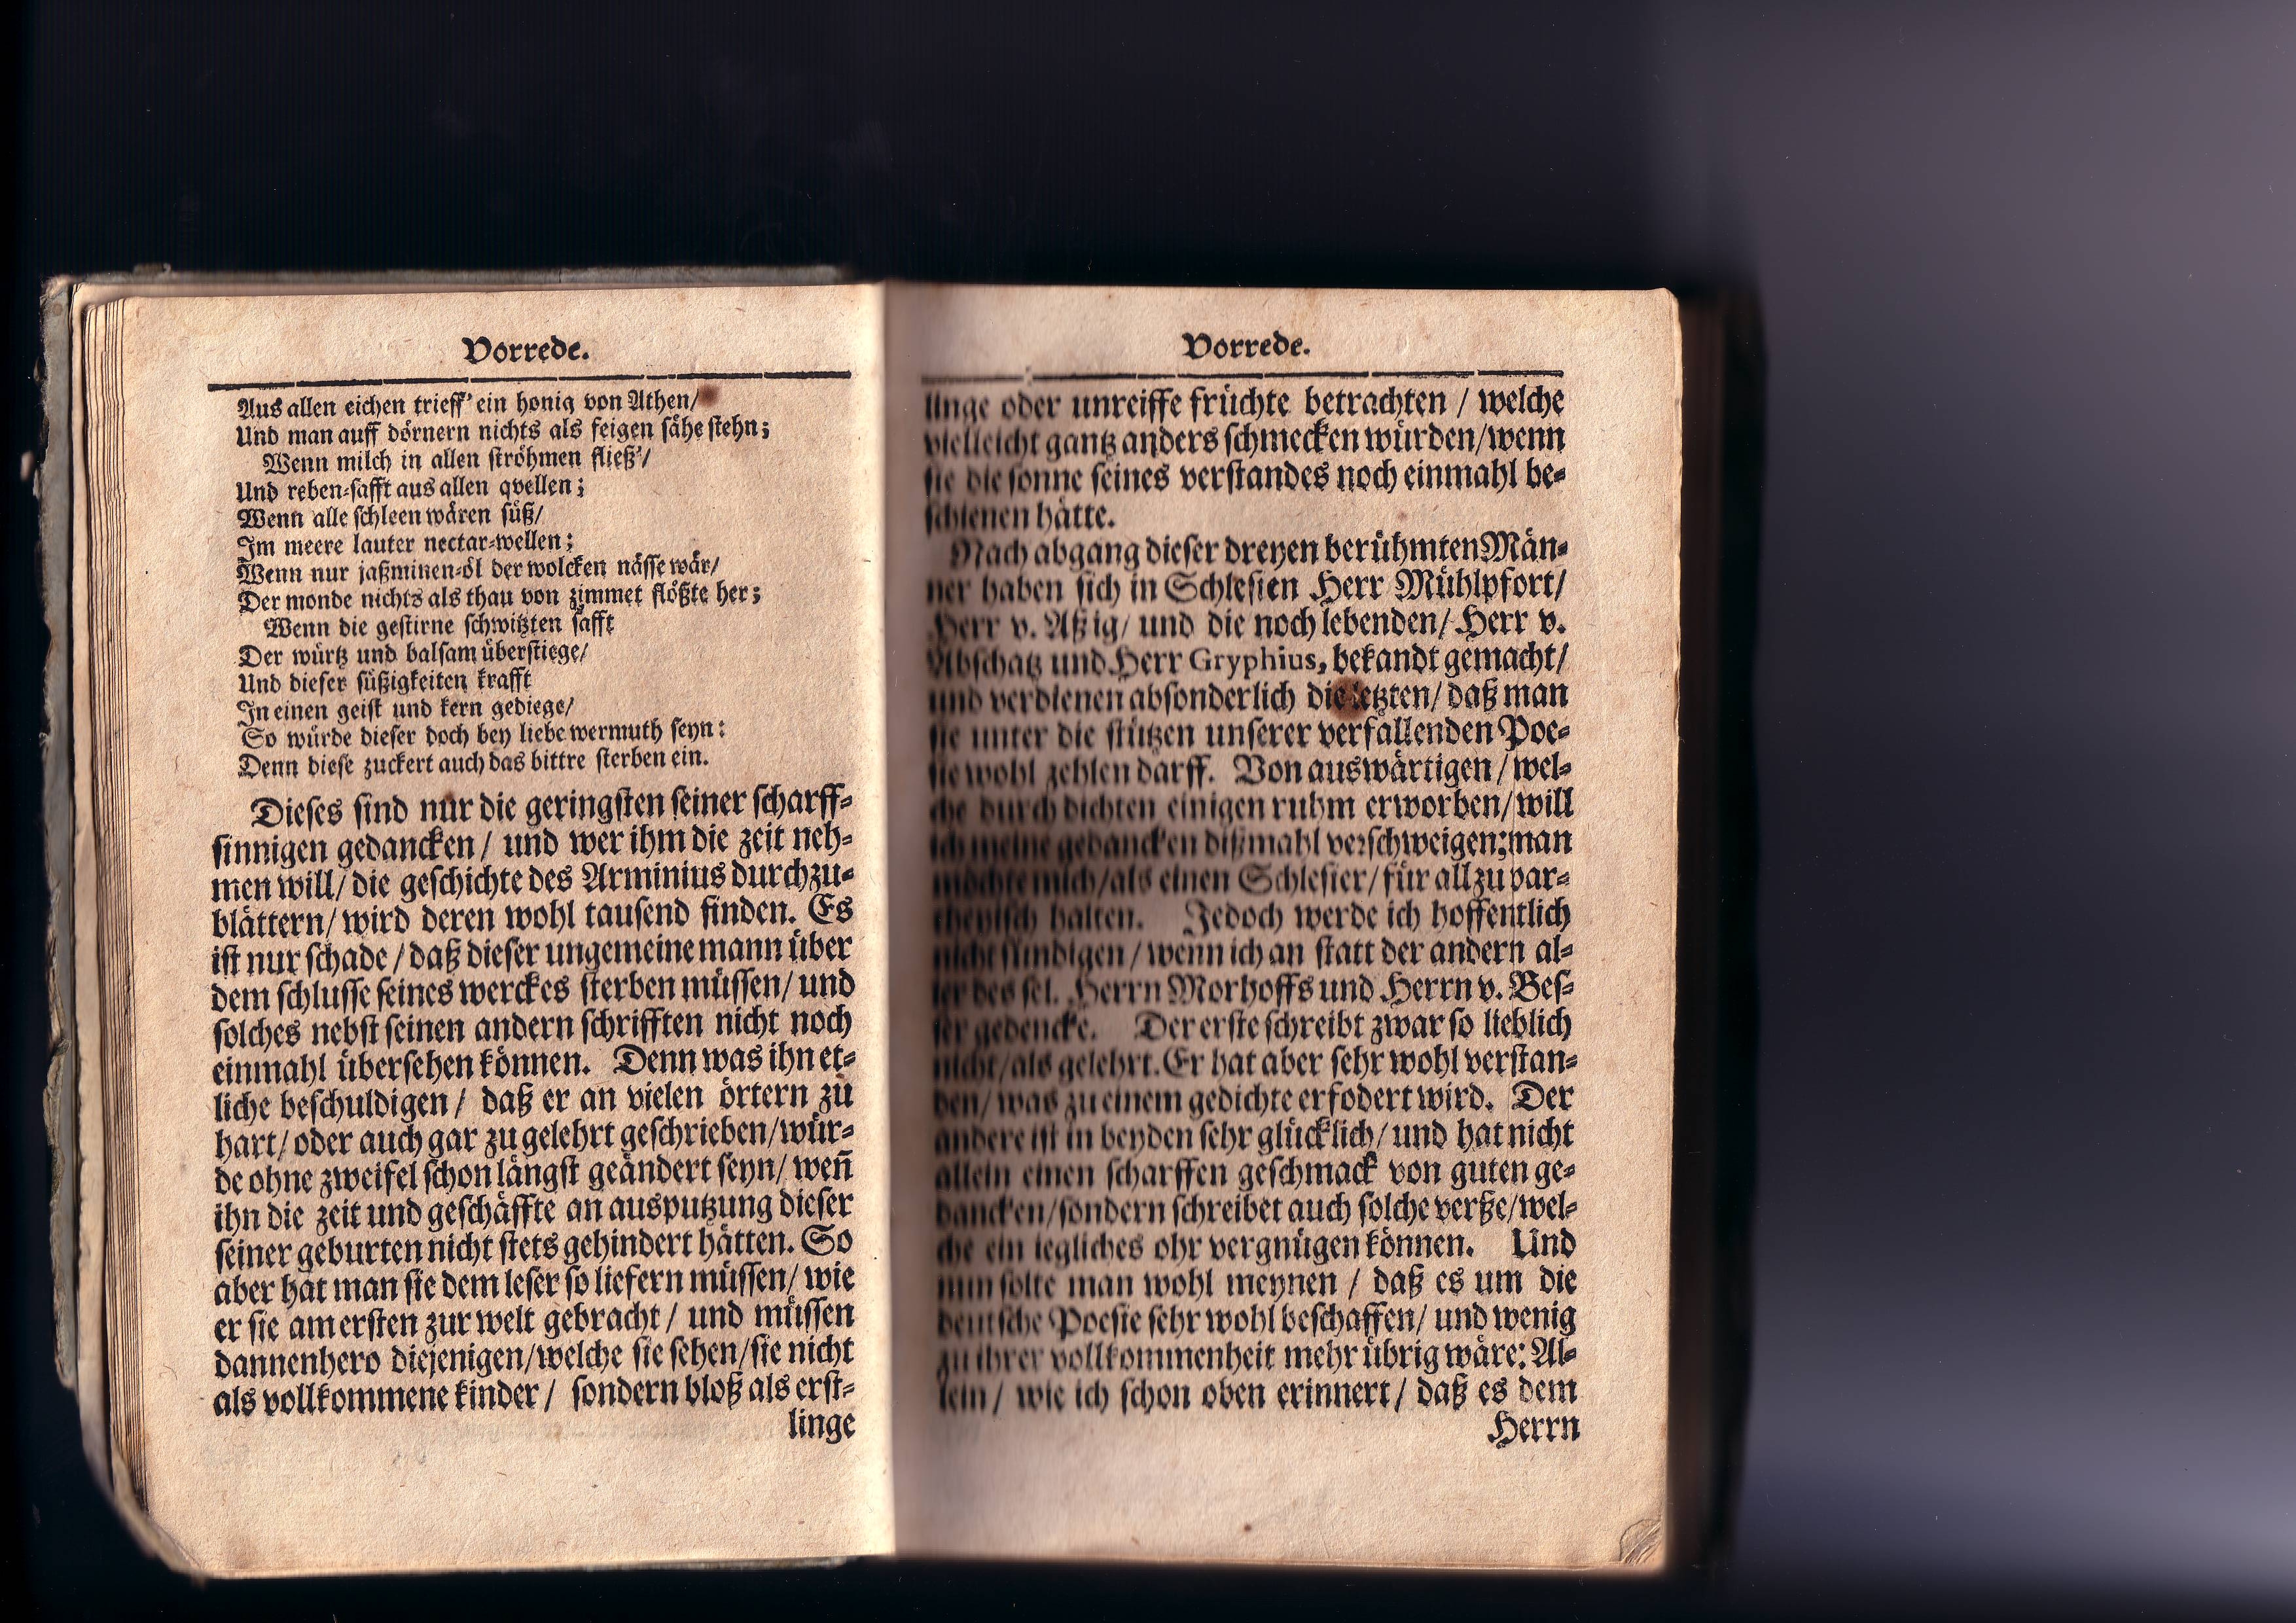 Vorrede.
Aus allen eichen trieff' ein honig von Athen/
Und man auff dörnern nichts als feigen sähe stehn;
Wenn milch in allen ströhmen fließ'/
Und reben-safft aus allen qvellen;
Wenn alle schleen wären süß/
Im meere lauter nectar-wellen;
Wenn nur jaßminen-öl der wolcken nässe wär/
Der monde nichts als thau von zimmet flößte her;
Wenn die gestirne schwitzten safft
Der würtz und balsam überstiege/
Und dieser süßigkeiten krafft
In einen geist und kern gediege/
So würde dieser doch bey liebe wermuth seyn:
Denn diese zuckert auch das bittre sterben ein.
Dieses sind nur die geringsten seiner scharff-
sinnigen gedancken / und wer ihm die zeit neh-
men will/ die geschichte des Arminius durchzu-
blättern/ wird deren wohl tausend finden. Es
ist nur schade / daß dieser ungemeine mann über
dem schlusse seines werckes sterben müssen/ und
solches nebst seinen andern schrifften nicht noch
einmahl übersehen können. Denn was ihn et-
liche beschuldigen / daß er an vielen örtern zu
hart/ oder auch gar zu gelehrt geschrieben/ wür-
de ohne zweifel schon längst geändert seyn/ weñ
ihn die zeit und geschäffte an ausputzung dieser
seiner geburten nicht stets gehindert hätten. So
aber hat man sie dem leser so liefern müssen/ wie
er sie am ersten zur welt gebracht / und müssen
dannenhero diejenigen/ welche sie sehen/ sie nicht
als vollkommene kinder / sondern bloß als erst-
linge
Vorrede.
linge oder unreiffe früchte betrachten / welche
vielleicht gantz anders schmecken würden/ wenn
sie die sonne seines verstandes noch einmahl be-
schienen hätte.
Nach abgang dieser dreyen berühmten Män-
ner haben sich in Schlesien Herr Mühlpfort/
Herr v. Aßig/ und die noch lebenden/ Herr v.
Abschatz und Herr Gryphius, bekandt gemacht/
und verdienen absonderlich die letzten/ daß man
sie unter die stützen unserer verfallenden Poe-
sie wohl zehlen darff. Von auswärtigen / wel-
che durch dichten einigen ruhm erworben/ will
ich meine gedancken dißmahl verschweigen; man
möchte mich/ als einen Schlesier/ für allzu par-
theyisch halten. Jedoch werde ich hoffentlich
nicht sündigen / wenn ich an statt der andern al-
ler des sel. Herrn Morhoffs und Herrn v. Bes-
ser gedencke. Der erste schreibt zwar so lieblich
nicht/ als gelehrt. Er hat aber sehr wohl verstan-
den/ was zu einem gedichte erfodert wird. Der
andere ist in beyden sehr glücklich/ und hat nicht
allein einen scharffen geschmack von guten ge-
dancken/ sondern schreibet auch solche verße/ wel-
che ein iegliches ohr vergnügen können. Und
nun solte man wohl meynen / daß es um die
deutsche Poesie sehr wohl beschaffen/ und wenig
zu ihrer vollkommenheit mehr übrig wäre: Al-
lein / wie ich schon oben erinnert / daß es dem
Herrn